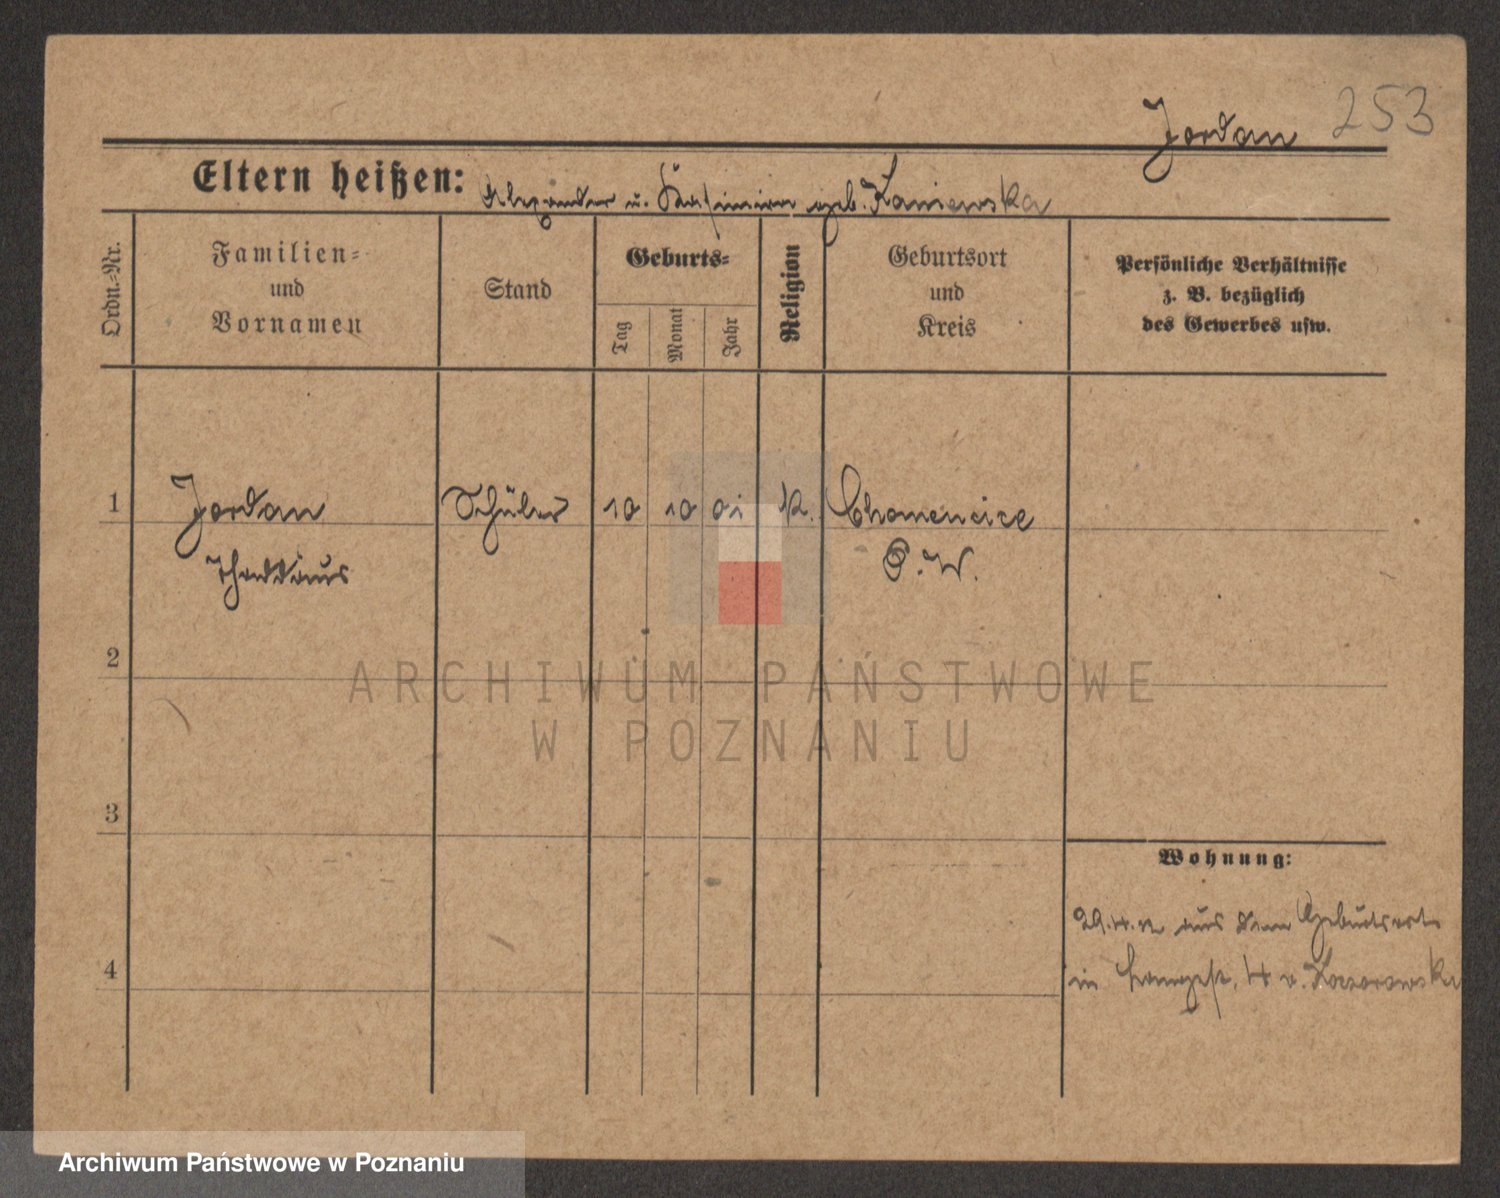 253
Jordan
Eltern heißen: Alexander u. Kasimira geb. Kaniewska
Ordn.-Nr.
Familien-
und
Vornamen
Stand
Geburts-
Tag
Monat
Jahr
Religion
Geburtsort
und
Kreis
Persönliche Verhältnisse
z. B. bezüglich
des Gewerbes usw.
1 Jordan Schüler 10 10 01 K. Chomencice
Thaddäus P. W.
2
3
4
Wohnung:
29.4.12 aus dem Geburtsort
in 4 v. Koczorowska
ARCHIWUM PAŃSTWOWE
W POZNANIU
Archiwum Państwowe w Poznaniu